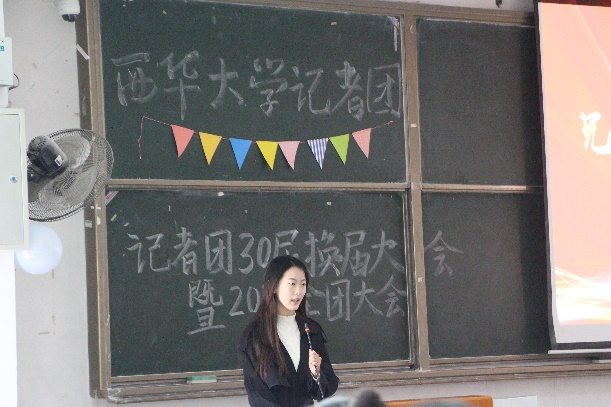 西华大学记者团
记者团30届换届大会
暨20 全团大会